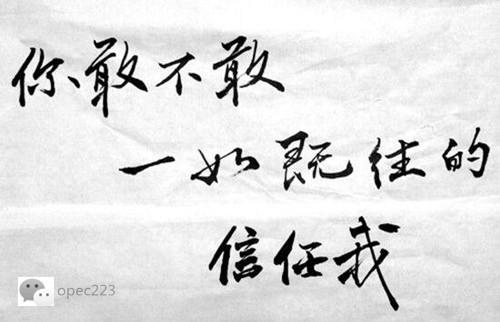 你敢不敢
一如既往的
信任我
opec223